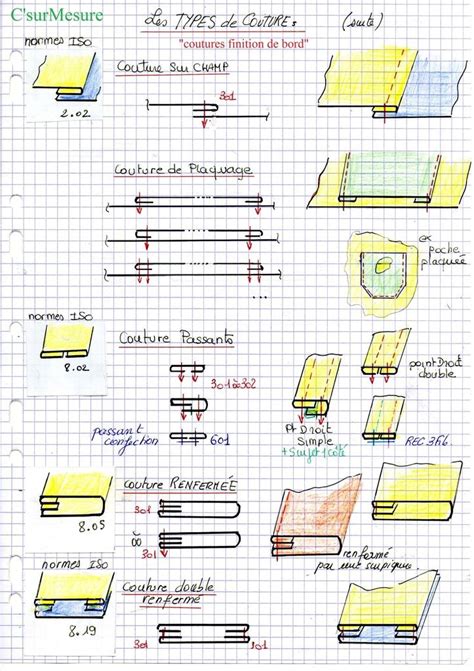 C'surMesure
Les TYPES de COUTURE:
(suite)
normes ISO
"coutures finition de bord"
Couture sur CHAMP
301
2.02
Couture de Plaquage
...
...
ex
poche
plaquée
normes ISO
Couture Passants
8.02
301 à 302
point Droit
double
passant
confection
601
Pt Droit
Simple
+ Surjet 1 Côté
REC
couture RENFERMÉE
301
8.05
301
renfermé
par une surpiqure
normes ISO
Couture double
renfermé
8.19
301
301